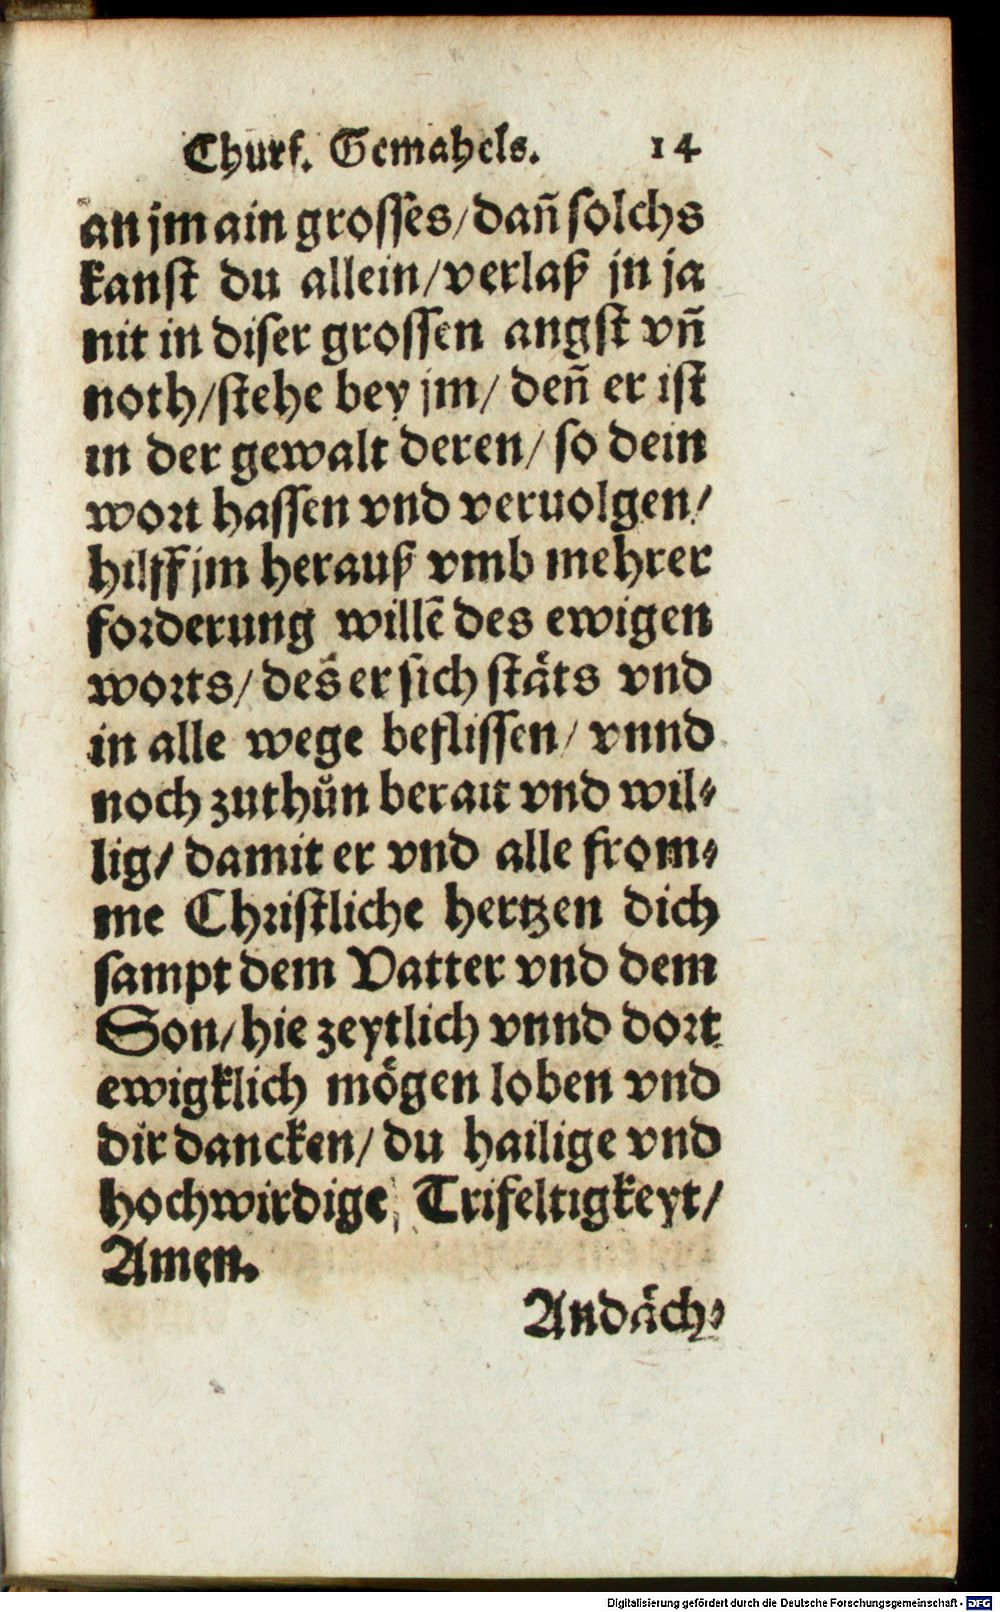 Churf. Gemahels. 14
an jm ain grosses/ dañ solchs
kanst du allein/ verlaß jn ja
nit in diser grossen angst vñ
noth/ stehe bey jm/ deñ er ist
in der gewalt deren/ so dein
wort hassen vnd veruolgen/
hilff jm herauß vmb mehrer
forderung willē des ewigen
worts/ des̄ er sich stäts vnd
in alle wege beflissen/ vnnd
noch zuthůn berait vnd wil⸗
lig/ damit er vnd alle from⸗
me Christliche hertzen dich
sampt dem Vatter vnd dem
Son/ hie zeytlich vnnd dort
ewigklich mögen loben vnd
dir dancken/ du hailige vnd
hochwirdige, Trifeltigkeyt/
Amen.
Andäch⸗
Digitalisierung gefördert durch die Deutsche Forschungsgemeinschaft - DFG